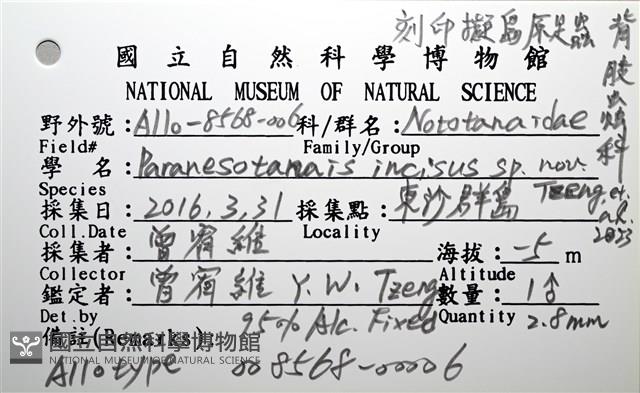 刻印擬島原足蟲
背肢虫焰科
國立自然科學博物館
NATIONAL MUSEUM OF NATURAL SCIENCE
野外號: Allo-8568-006 科/群名: Nototanaidae
Field# Family/Group
學 名: Paranesotanais incisus sp. nov.
Species Tzeng, et. al. 2023
採集日: 2016.3.31 採集點: 東沙群島
Coll.Date Locality
採集者: 曾宥維 海拔: -5 m
Collector Altitude
鑑定者: 曾宥維 Y. W. Tzeng 數量: 1♂
Det.by Quantity 2.8mm
備註(Remarks) 95% Alc. Fixed
國立自然科學博物館
NATIONAL MUSEUM OF NATURAL SCIENCE
Allotype 008568-00006